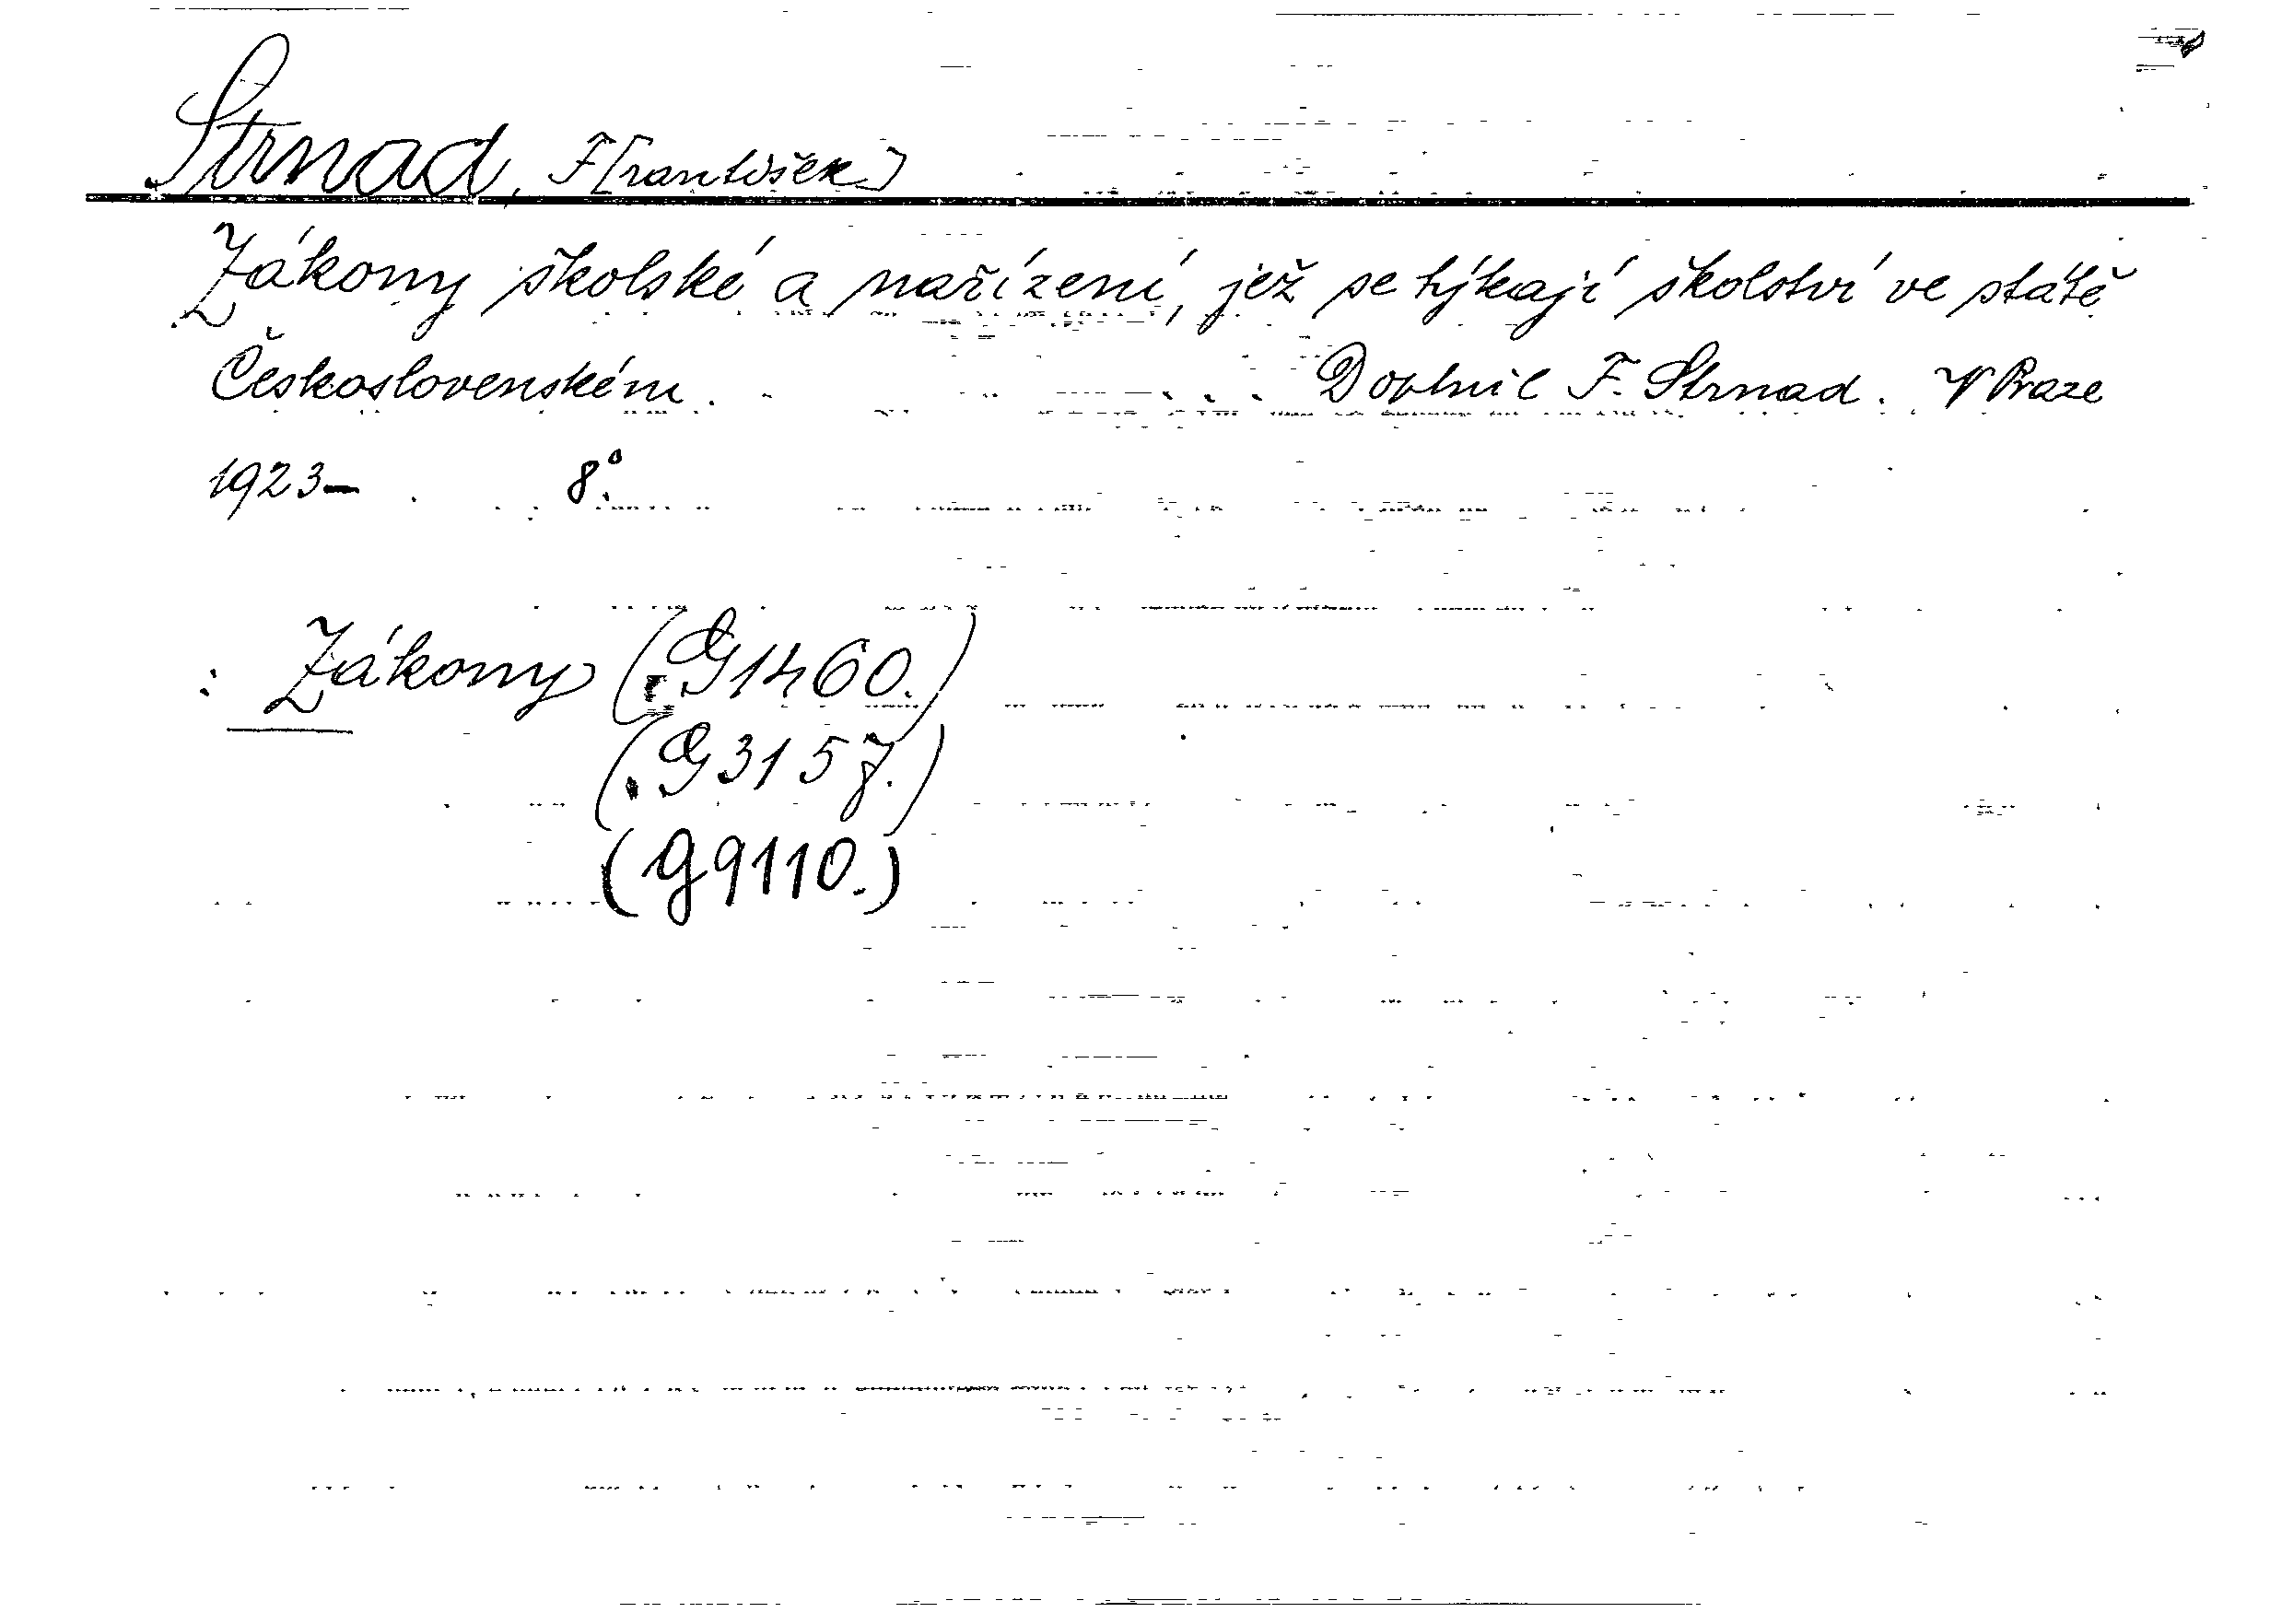 Strnad, F[rantišek]
Zákony školské a nařízení, jež se týkají školství ve státě
Československém. . . . Doplnil F. Strnad. V Praze
1923– . 8°.
: Zákony (G1460.)
(G3157.)
(G9110.)